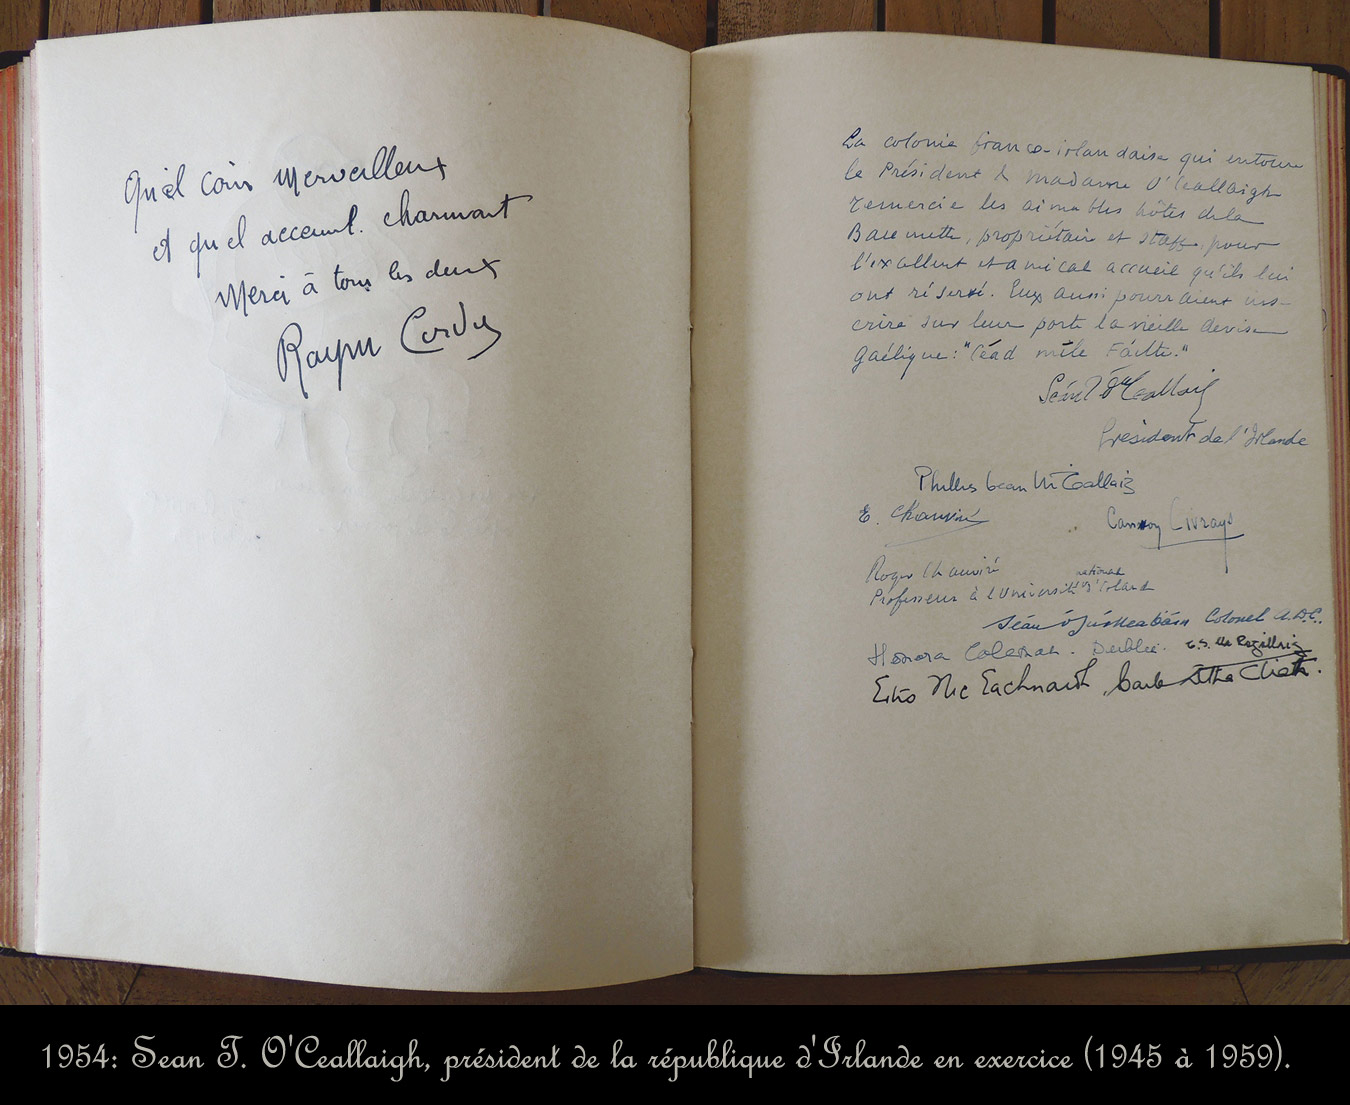 Quel coin merveilleux
et quel acceuil. charmant
Merci à tous les deux
Raym Cordy
La colonie franco-irlandaise qui entoure
le Président & madame O'Ceallaigh
remercie les aimables hôtes de la
Baumette, propriétaire et staff, pour
l'excellent et amical accueil qu'ils lui
ont réservé. Eux aussi pourraient ins-
crire sur leur porte la vieille devise
gaélique: "Céad mile Fáilte."
Seán T
Président de l'Irlande
Phyllis Bean Uí Ceallaig
E. Chauviré
Roger Chauviré
national
Professeur à l'Université d'Irlande
Seán Colonel A.D.C.
Honora Coleman.
Nic Eachnaidh, Baile Átha Cliath.
1954: Sean T. O'Ceallaigh, président de la république d'Irlande en exercice (1945 à 1959).